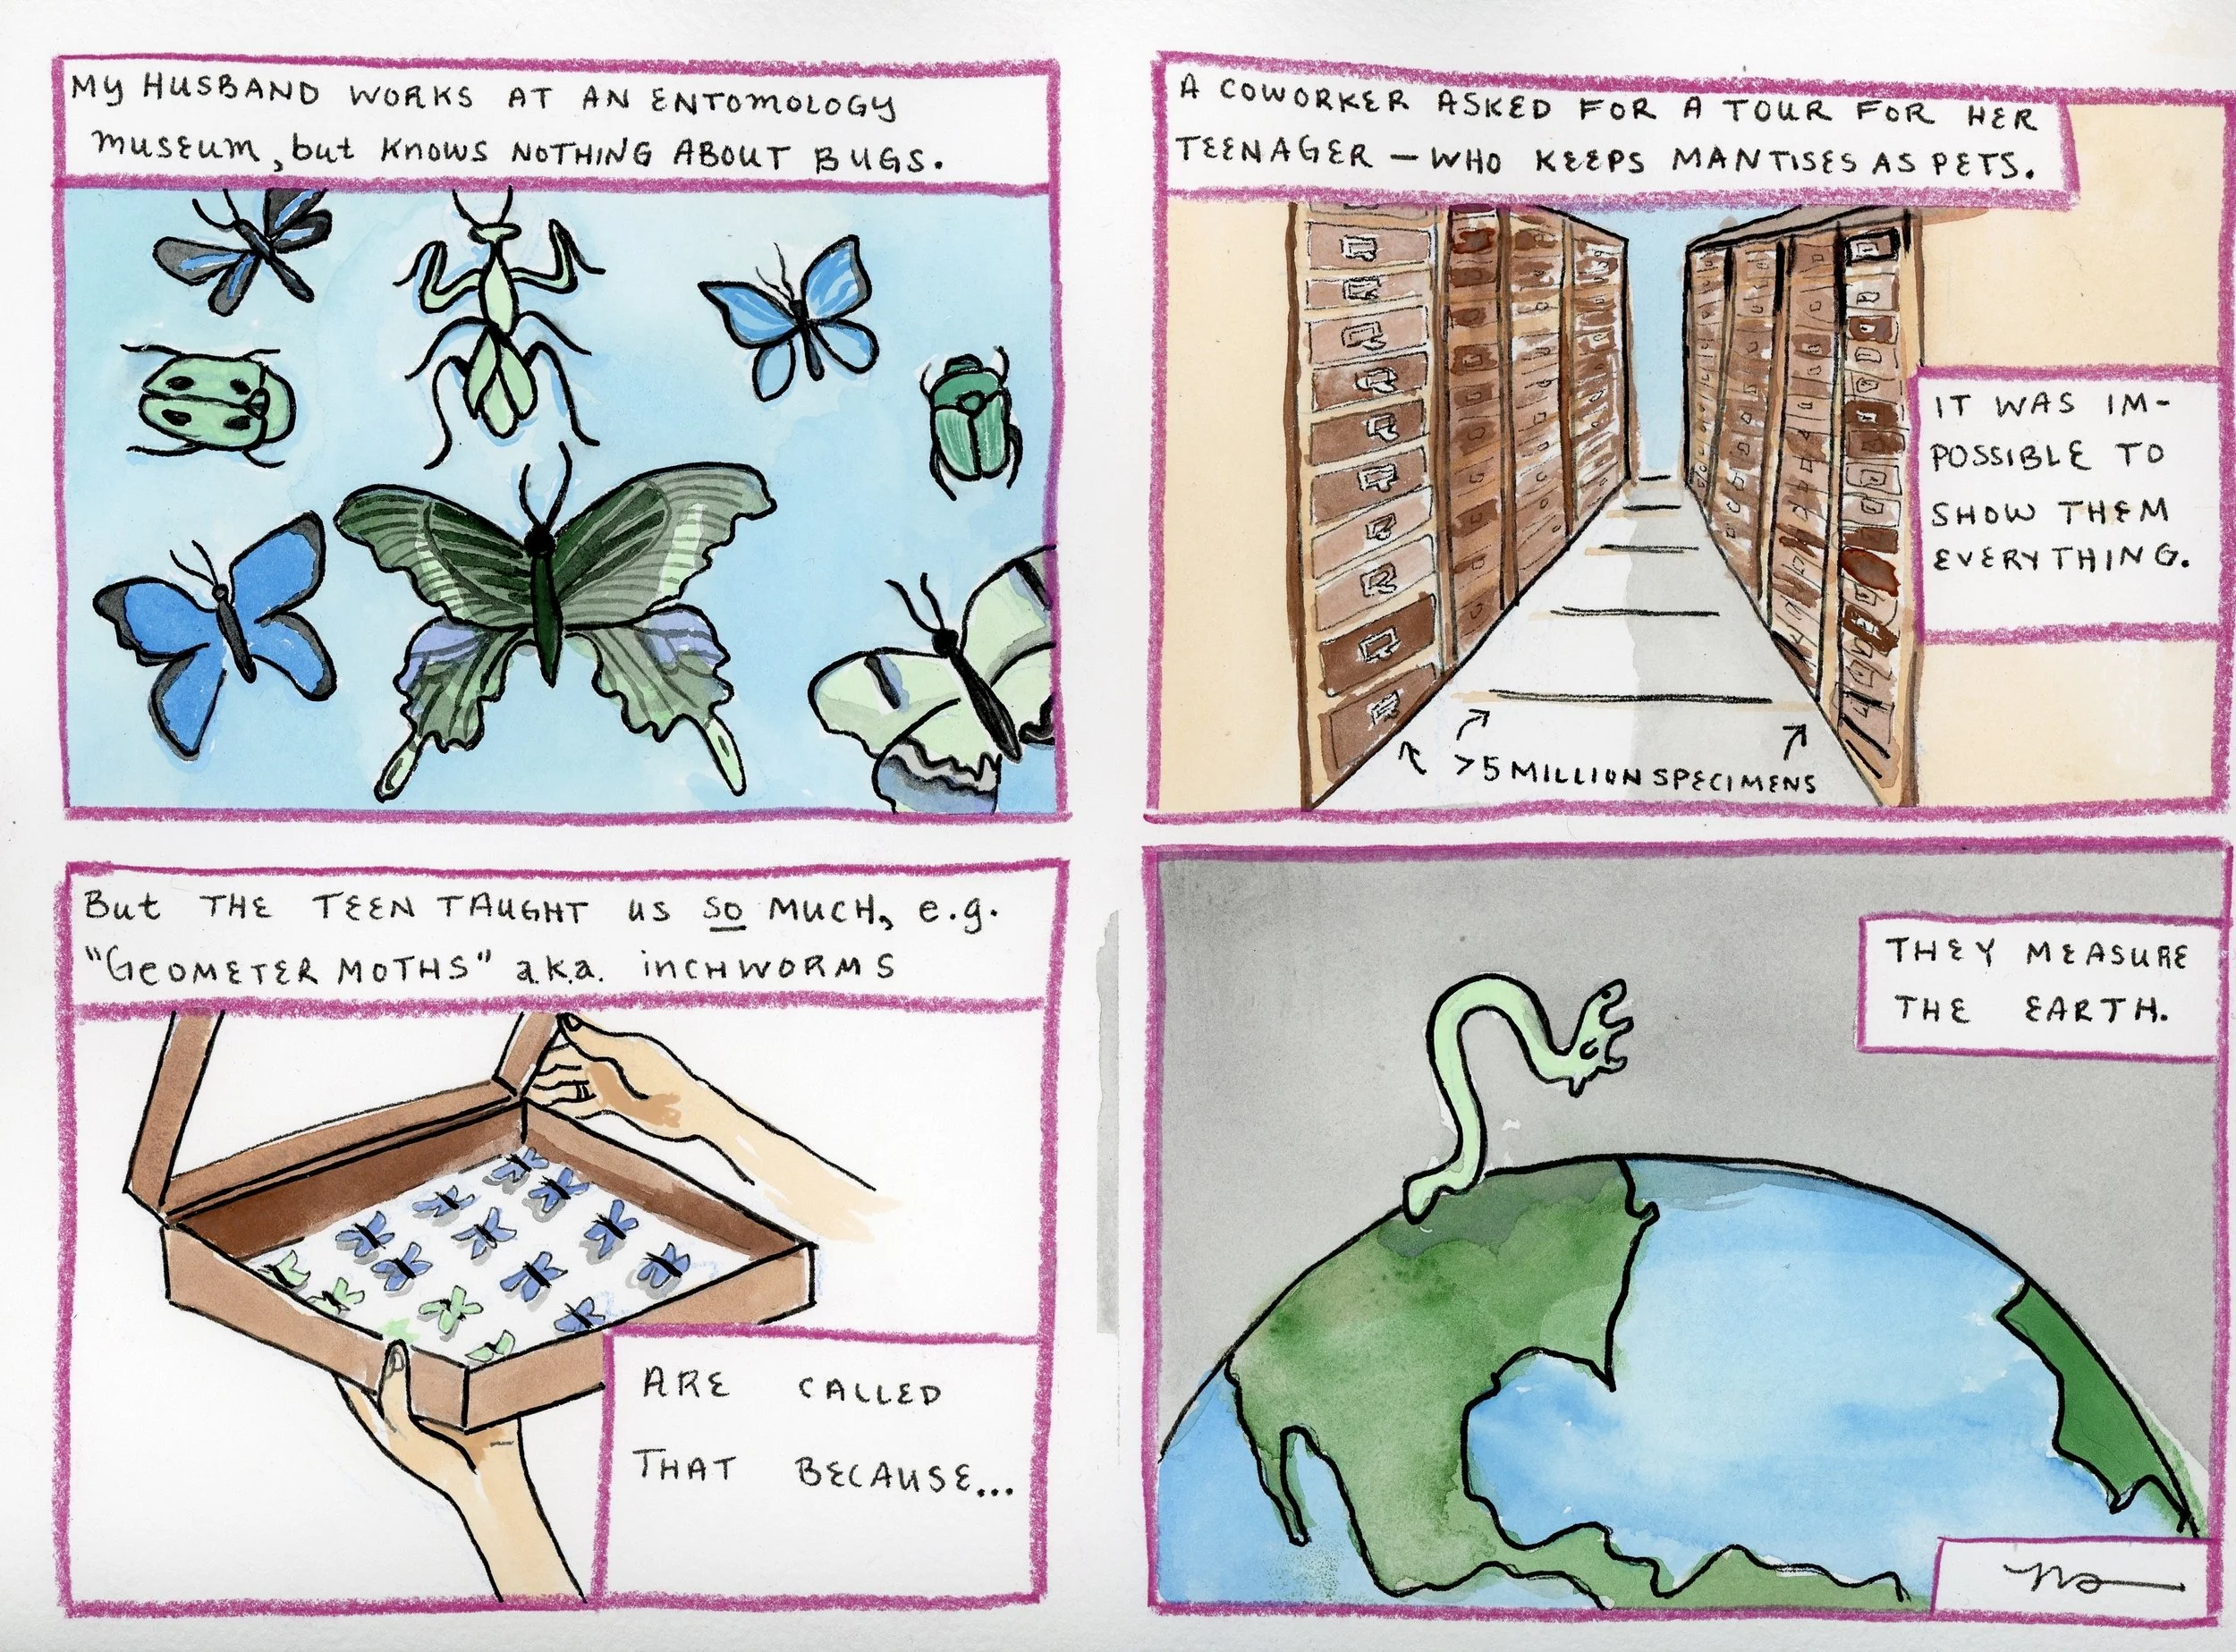 My HUSBAND WORKS AT AN ENTOMOLOGY
museum, but KNOWS NOTHING ABOUT BUGS.
A COWORKER ASKED FOR A TOUR FOR HER
TEENAGER – WHO KEEPS MANTISES AS PETS.
IT WAS IM-
POSSIBLE TO
SHOW THEM
EVERYTHING.
>5 MILLION SPECIMENS
But THE TEEN TAUGHT us SO MUCH, e.g.
"GEOMETER MOTHS" a.k.a. iNCHWORMS
ARE CALLED
THAT BECAUSE...
THEY MEASURE
THE EARTH.